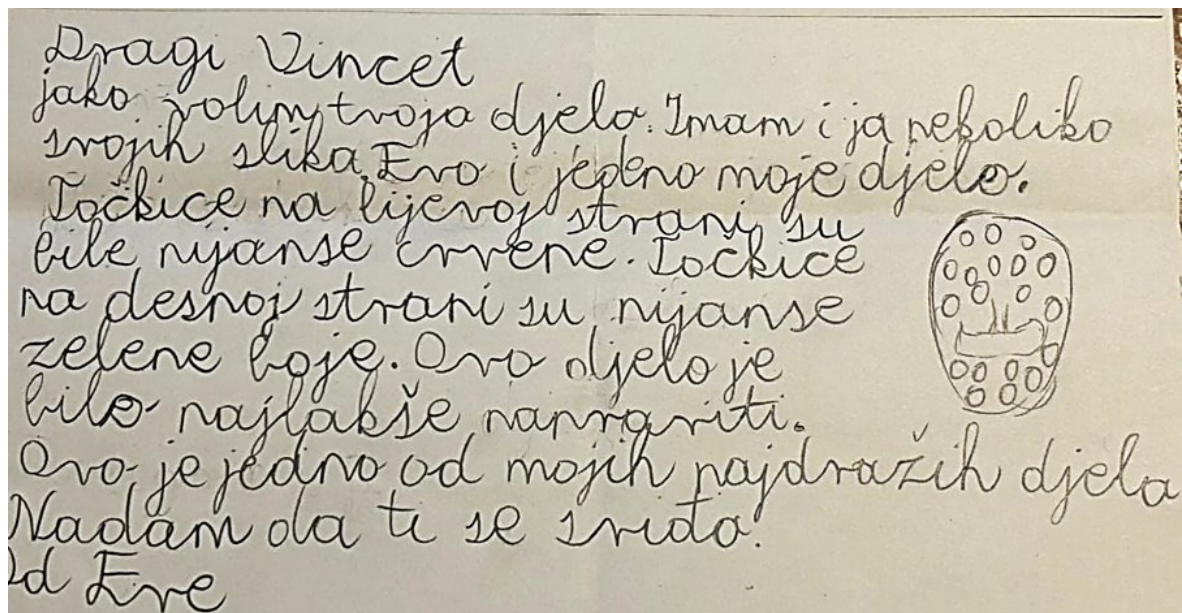 Dragi Vincet
jako volim tvoja djela. Imam i ja nekoliko
svojih slika. Evo i jedno moje djelo.
Točkice na lijevoj strani su
bile nijanse crvene. Točkice
na desnoj strani su nijanse
zelene boje. Ovo djelo je
bilo najlakše napraviti.
Ovo je jedno od mojih najdražih djela
Nadam da ti se sviđa.
Od Eve